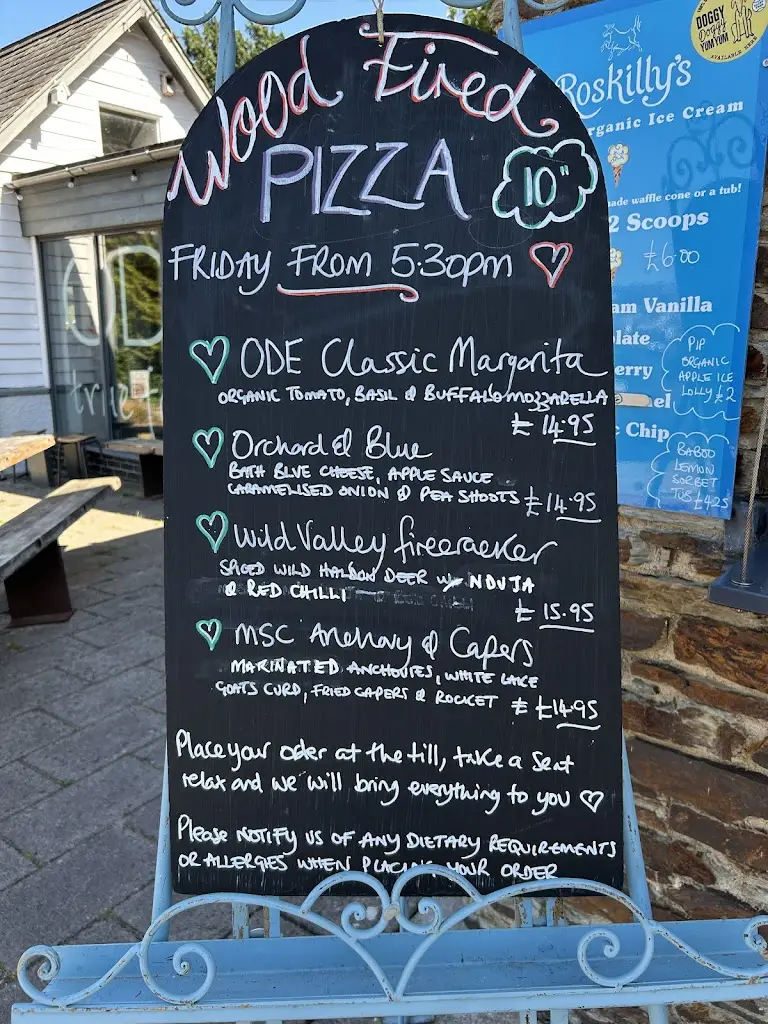 Wood Fired
PIZZA
10"
FRIDAY FROM 5.30pm
ODE Classic Margarita
ORGANIC TOMATO, BASIL & BUFFALO MOZZARELLA
£14.95
Orchard & Blue
BATH BLUE CHEESE, APPLE SAUCE
CARAMELISED ONION & PEA SHOOTS £14.95
Wild Valley firecracker
SPICED WILD HALDON DEER w/ NDUJA
& RED CHILLI
£15.95
MSC Anchovy & Capers
MARINATED ANCHOVIES, WHITE LAKE
GOATS CURD, FRIED CAPERS & ROCKET £14.95
Place your oder at the till, take a Seat
relax and we will bring everything to you
Please NOTIFY US OF ANY DIETARY REQUIREMENTS
OR ALLERGIES WHEN PLACING YOUR ORDER
DOGGY
Doggy
YUM YUM
AVAILABLE HERE
Roskilly's
rganic Ice Cream
ade waffle cone or a tub!
2 Scoops
£6.00
am Vanilla
late
erry
el
c Chip
PIP
ORGANIC
APPLE ICE
LOLLY £2
BABOO
LEMON
SORBET
TUB £4.25
OD
true